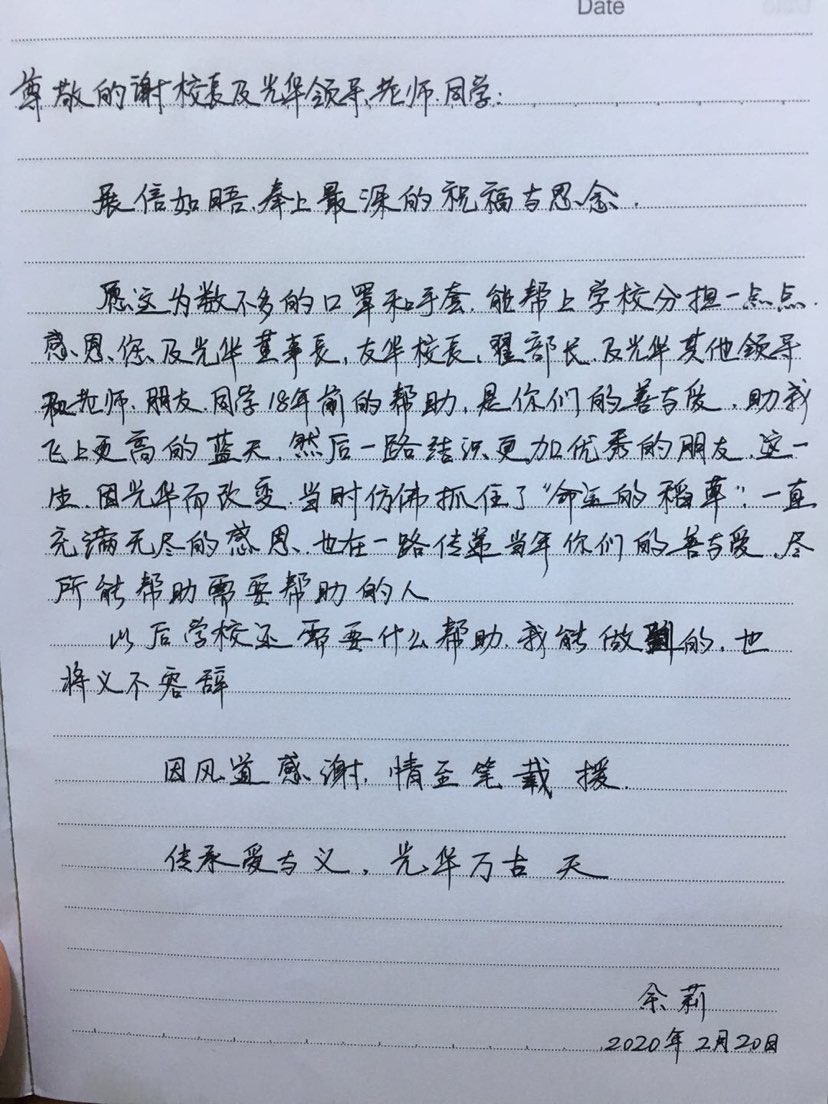 Date
尊敬的谢校长及光华领导、老师、同学：
展信如晤、奉上最深的祝福与思念.
愿这为数不多的口罩和手套.能帮上学校分担一点点.
感恩您及光华董事長,友华校長,翟部长.及光华其他领导
和老师、朋友、同学18年前的帮助,是你们的善与爱,助我
飞上更高的蓝天,然后一路结识更加优秀的朋友.这一
生.因光华而改变.当时仿佛抓住了“命运的稻草”.一直
充满无尽的感恩、也在一路传递当年你们的善与爱.尽
所能帮助需要帮助的人
以后学校还需要什么帮助.我能做到的.也
将义不容辞
因风道感谢,情至笔载援.
传承爱与义,光华万古天
余莉
2020年2月20日